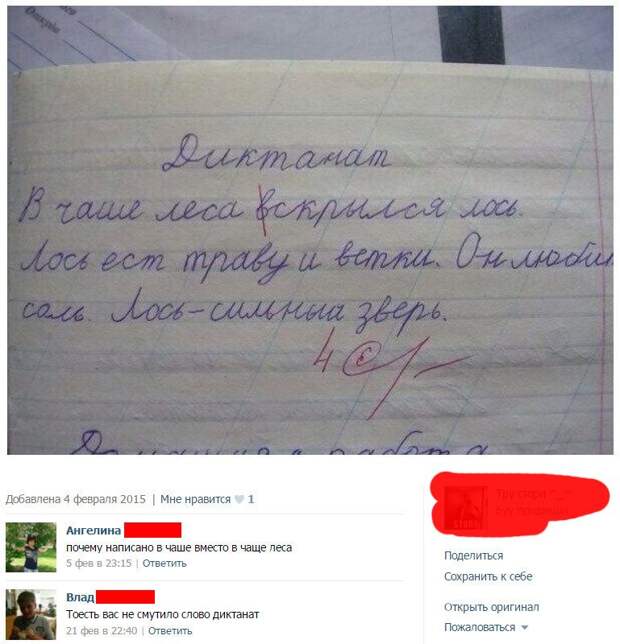 Диктанат
В чаше леса вскрылся лось.
Лось ест траву и ветки. Он любит
соль. Лось-сильный зверь.
4
Домашняя работа
Добавлена 4 февраля 2015 | Мне нравится 1
Ангелина
почему написано в чаше вместо в чаще леса
5 фев в 23:15 | Ответить
Влад
Тоесть вас не смутило слово диктанат
21 фев в 22:40 | Ответить
Поделиться
Сохранить к себе
Открыть оригинал
Пожаловаться